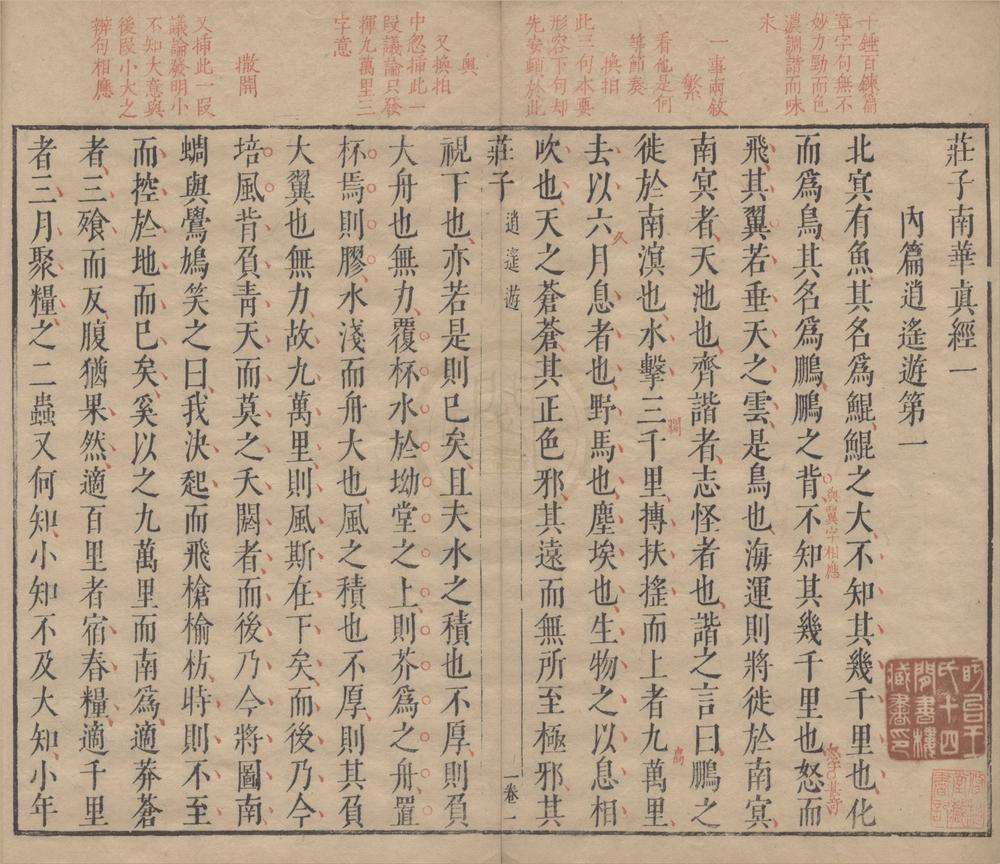 十錘百鍊篇
章字句無不
妙力勁而色
濃調諧而味
永
一事兩敘
繁
看他是何
等節奏
換拍
此三句本要
形容下句却
先安頓於此
奧
又換拍
中忽挿此一
段議論只發
揮九萬里三
字意
撒開
又挿此一段
議論發明小
不知大意與
後段小大之
辨句相應
莊子南華眞經一
內篇逍遙遊第一
北㝠有魚其名爲鯤鯤之大不知其幾千里也化
而爲鳥其名爲鵬鵬之背不知其幾千里也怒而
與翼字相應
飛其翼若垂天之雲是鳥也海運則將徙於南㝠
南㝠者天池也齊諧者志怪者也諧之言曰鵬之
徙於南溟也水擊三千里摶扶搖而上者九萬里
去以六月息者也野馬也塵埃也生物之以息相
吹也天之蒼蒼其正色邪其遠而無所至極邪其
莊子 逍遙遊 一卷 一
視下也亦若是則已矣且夫水之積也不厚則負
大舟也無力覆杯水於坳堂之上則芥爲之舟置
杯焉則膠水淺而舟大也風之積也不厚則其負
大翼也無力故九萬里則風斯在下矣而後乃今
培風背負靑天而莫之夭閼者而後乃今將圖南
蜩與鷽鳩笑之曰我決起而飛槍榆枋時則不至
而控於地而已矣奚以之九萬里而南爲適莽蒼
者三飱而反腹猶果然適百里者宿舂糧適千里
者三月聚糧之二蟲又何知小知不及大知小年